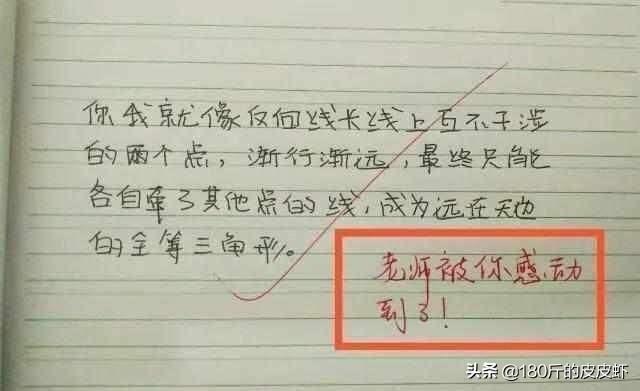 你我就像反向线长线上互不干涉
的两个点，渐行渐远，最终只能
各自牵了其他点的线，成为远在天边
的全等三角形。
老师被你感动
到了！
头条 @180斤的皮皮虾